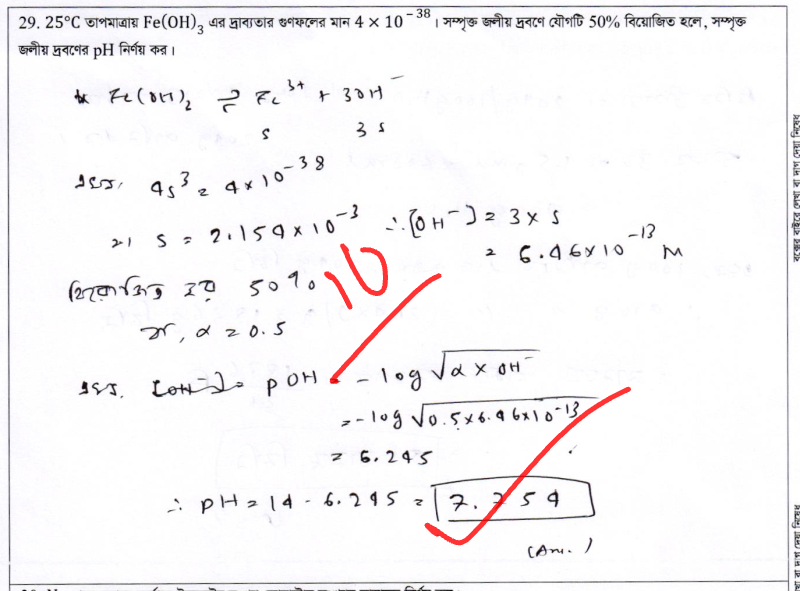 29. 25°C তাপমাত্রায় Fe(OH)₃ এর দ্রাব্যতার গুণফলের মান 4 × 10⁻³⁸। সম্পৃক্ত জলীয় দ্রবণে যৌগটি 50% বিয়োজিত হলে, সম্পৃক্ত
জলীয় দ্রবণের pH নির্ণয় কর।
Fe(OH)₂ ⇌ Fe³⁺ + 3OH⁻
s 3s
এখন, 4s³ = 4×10⁻³⁸
⇒ s = 2.154×10⁻¹³ ∴ [OH⁻] = 3×s
= 6.46×10⁻¹³ M
বিয়োজিত হয় 50%
10
α = 0.5
এখন, pOH = -log√α × OH⁻
= -log√0.5×6.46×10⁻¹³
= 6.245
∴ pH = 14 - 6.245 = 7.754
(Ans.)